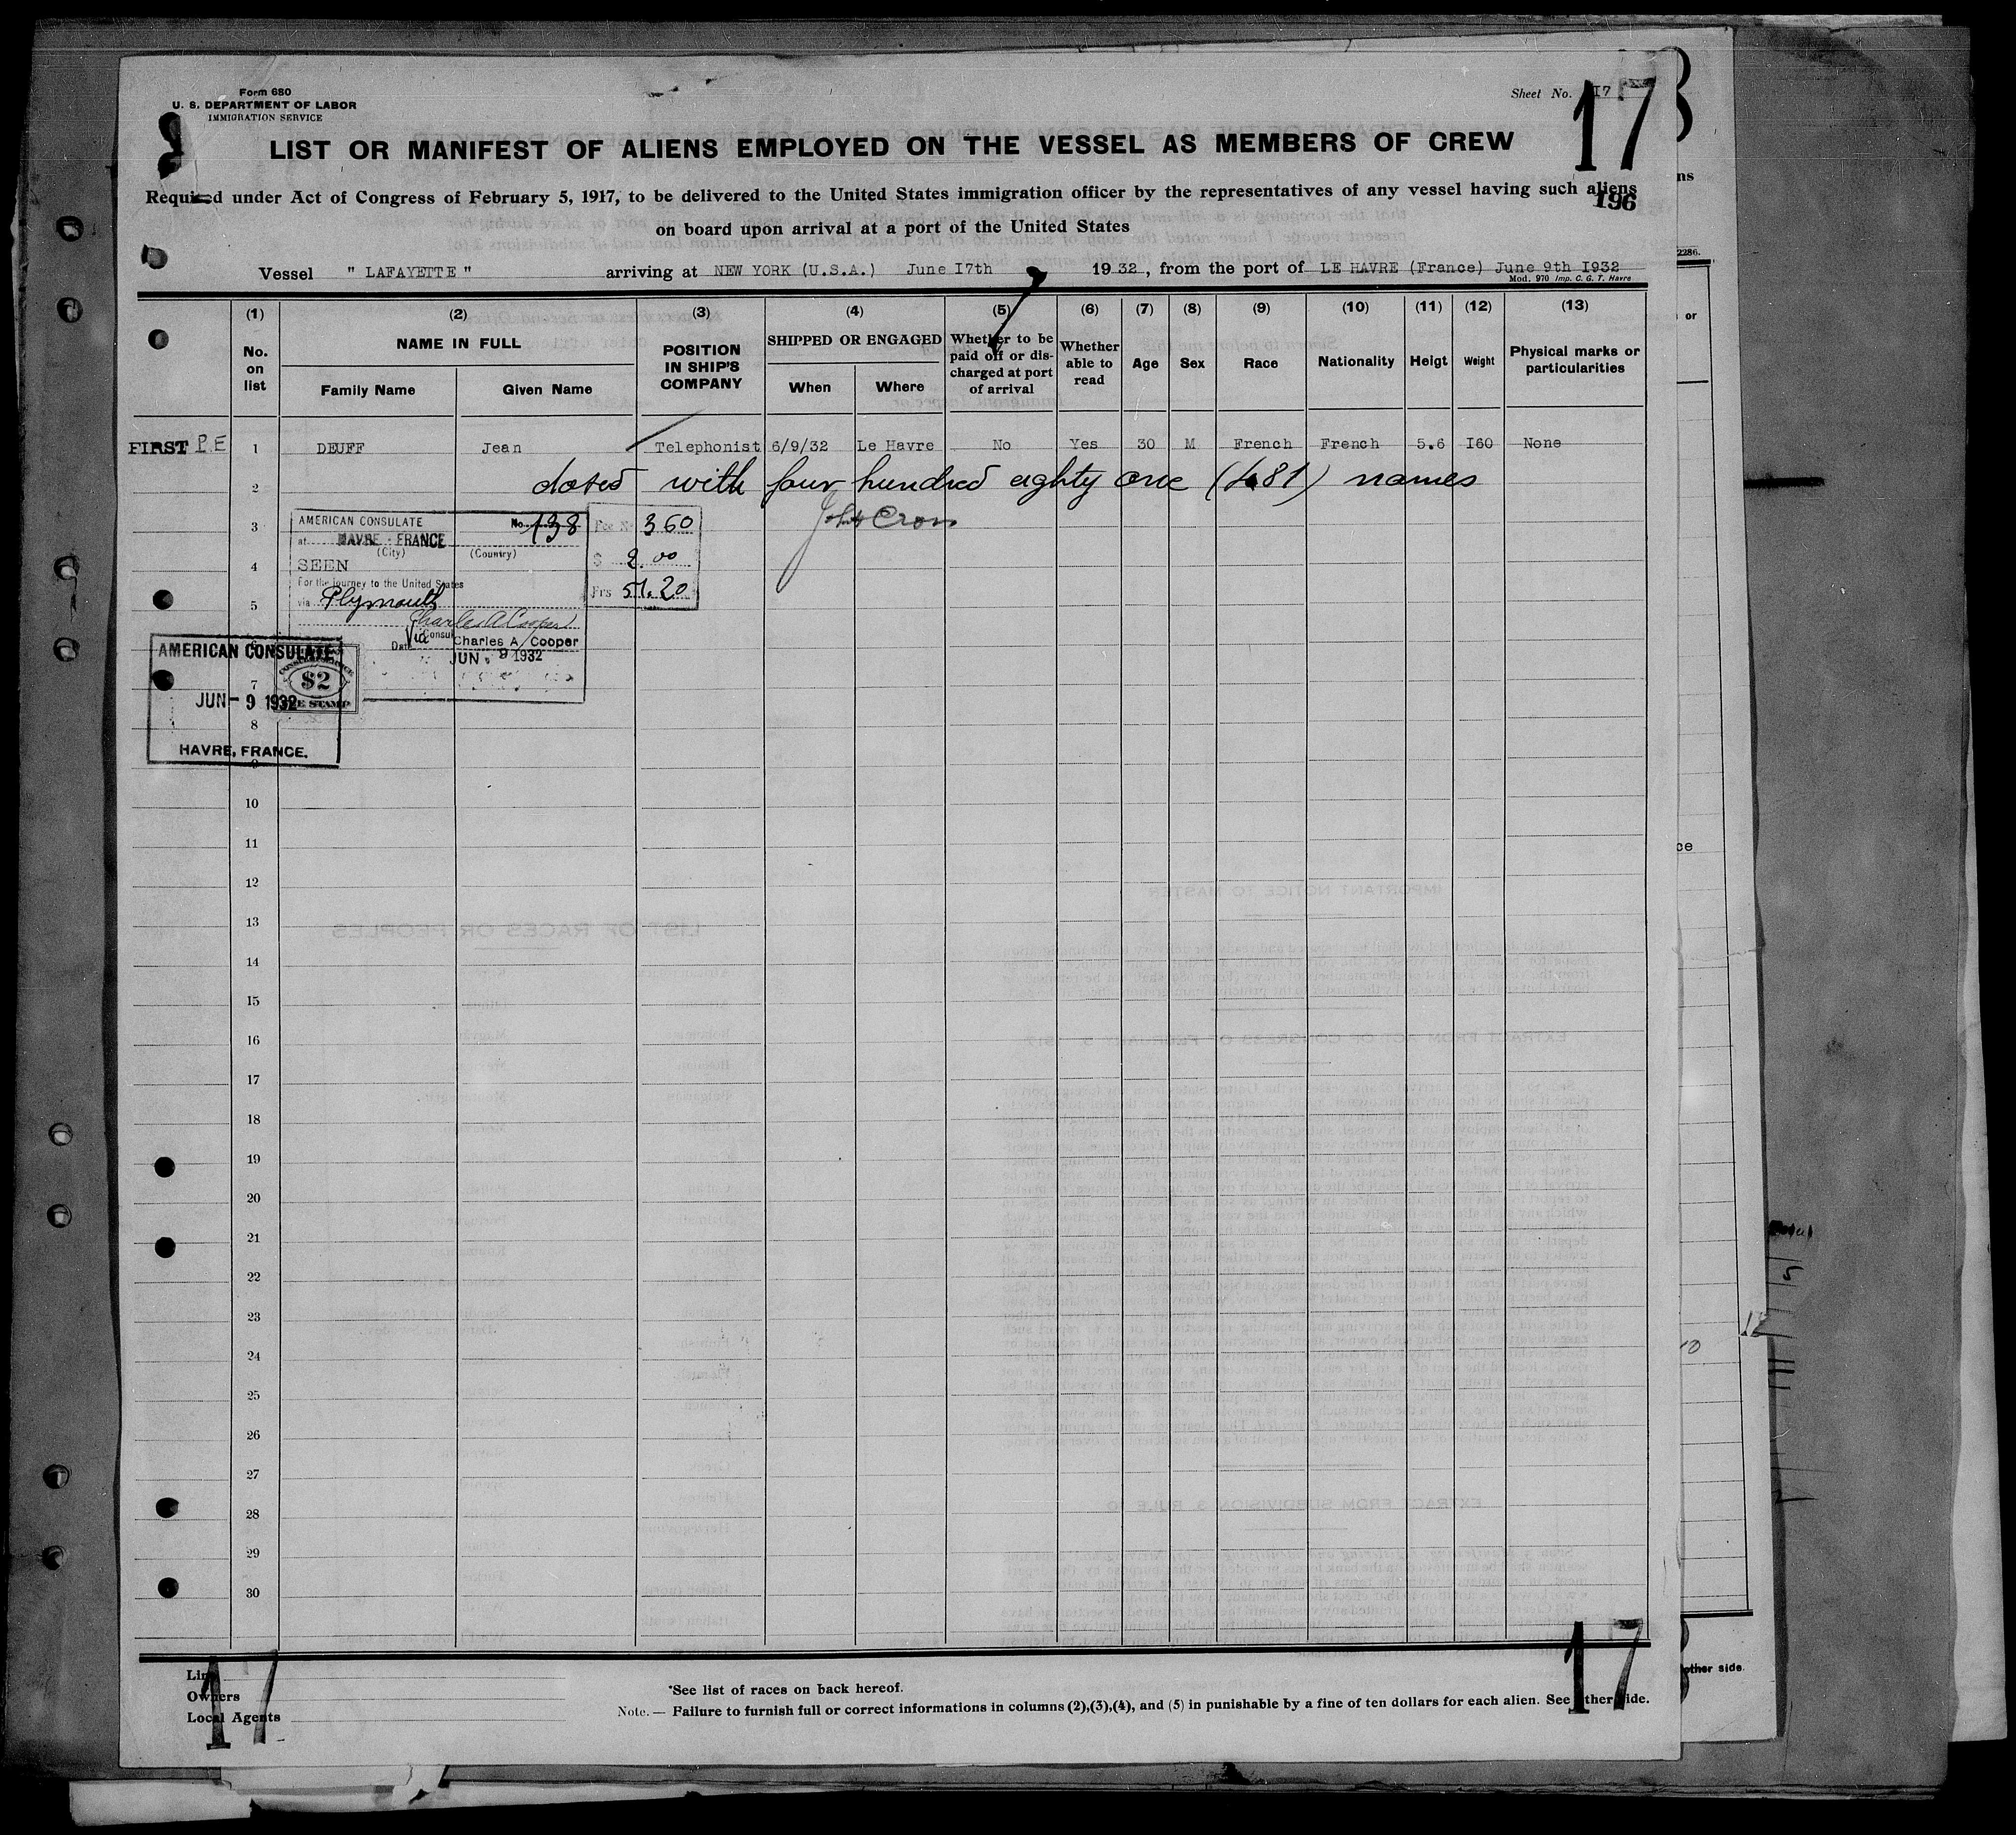 Form 680
U. S. DEPARTMENT OF LABOR
IMMIGRATION SERVICE
Sheet No. I7
17
LIST OR MANIFEST OF ALIENS EMPLOYED ON THE VESSEL AS MEMBERS OF CREW
Required under Act of Congress of February 5, 1917, to be delivered to the United States immigration officer by the representatives of any vessel having such aliens
196
on board upon arrival at a port of the United States
Vessel " LAFAYETTE " arriving at NEW YORK (U.S.A.) June I7th 1932, from the port of LE HAVRE (France) June 9th I932
Mod. 970 Imp. C. G. T. Havre
(1) (2) (3) (4) (5) (6) (7) (8) (9) (10) (11) (12) (13)
No. on list
NAME IN FULL
Family Name
Given Name
POSITION IN SHIP'S COMPANY
SHIPPED OR ENGAGED
When
Where
Whether to be paid off or discharged at port of arrival
Whether able to read
Age
Sex
Race
Nationality
Heigt
Weight
Physical marks or particularities
FIRST P E 1 DEUFF Jean Telephonist 6/9/32 Le Havre No Yes 30 M French French 5.6 I60 None
2 closed with four hundred eighty one (481) names
3
AMERICAN CONSULATE No. 138
at HAVRE - FRANCE
(City) (Country)
SEEN
For the journey to the United States
via Plymouth
Charles A Cooper
Via Consul Charles A Cooper
Date JUN. 9 1932
Fee No 360
$ 2.00
Frs 51.20
John Cron
4
5
6
AMERICAN CONSULATE
JUN - 9 1932
HAVRE, FRANCE.
$2
FEE STAMP
7
8
9
10
11
12
13
14
15
16
17
18
19
20
21
22
23
24
25
26
27
28
29
30
17
17
Line
Owners
Local Agents
*See list of races on back hereof.
Note. — Failure to furnish full or correct informations in columns (2),(3),(4), and (5) in punishable by a fine of ten dollars for each alien. See other side.
other side.